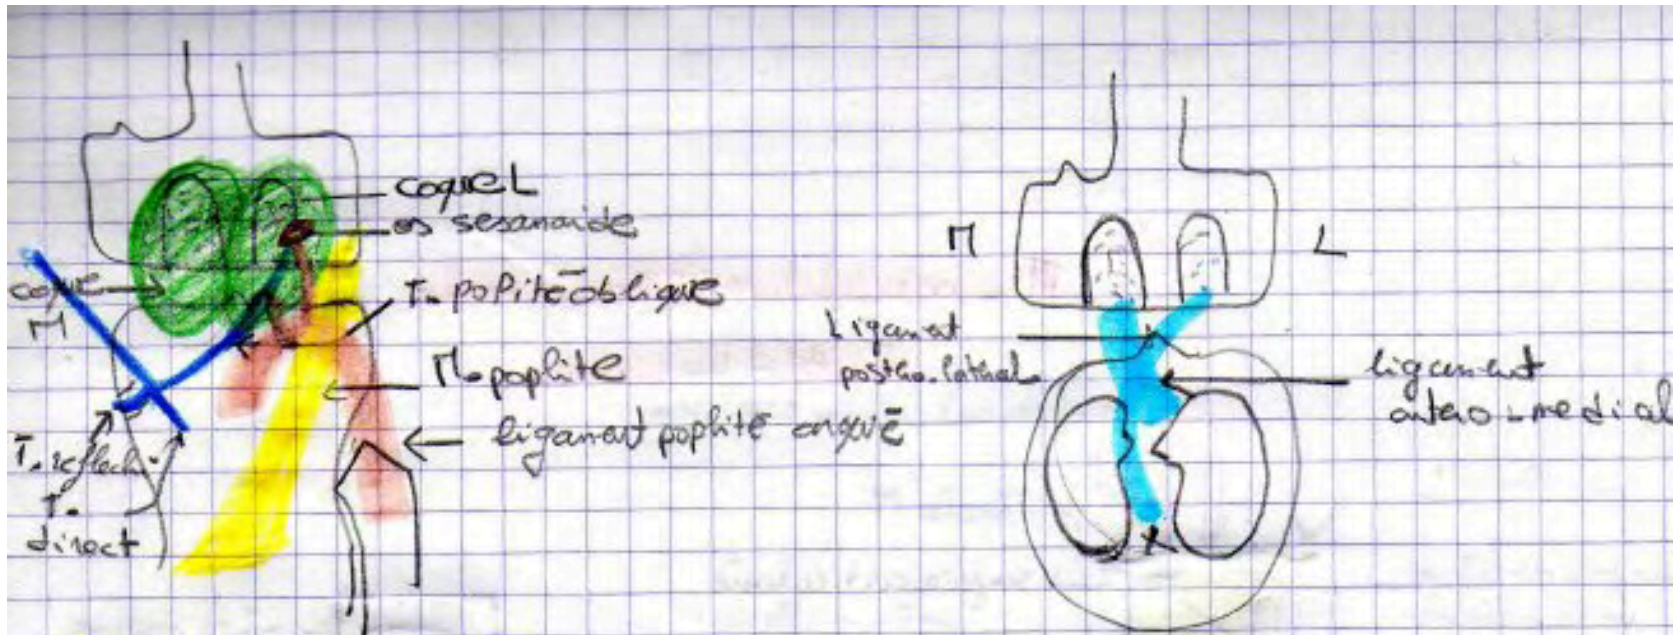 coque L
os sesamoide
coque
M
T. poplité oblique
M. poplité
ligament poplité arqué
T. reflechi
T.
direct
M
L
Ligament
postero-lateral
ligament
antero-medial